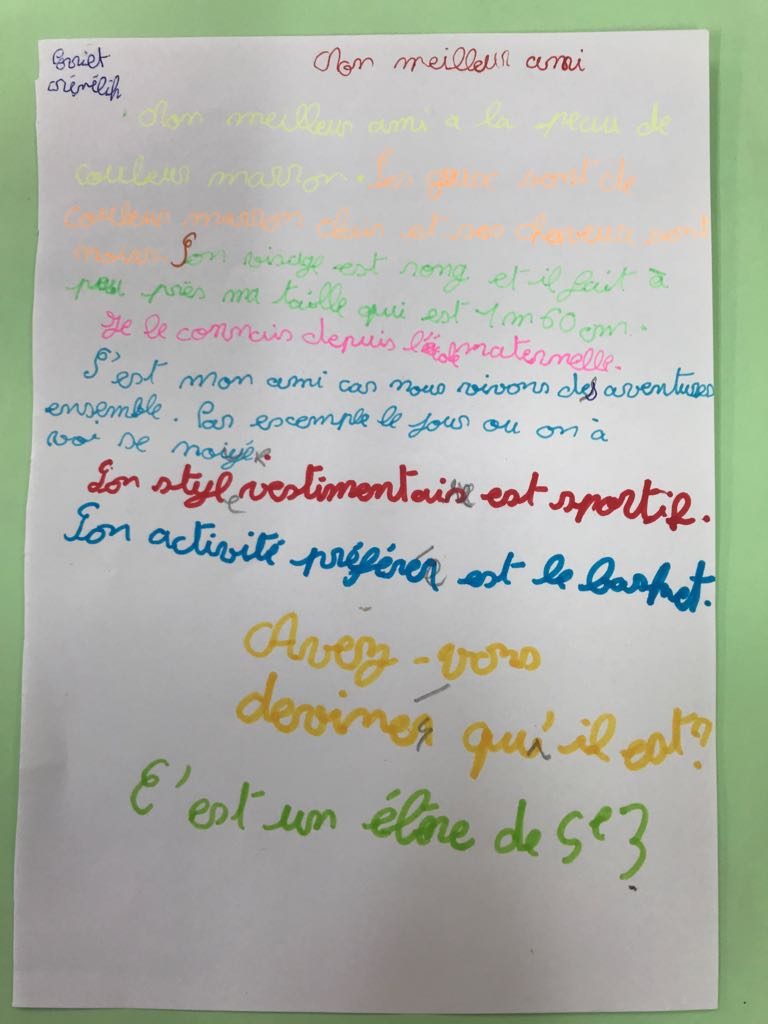 Mon meilleur ami
Mon meilleur ami a la peau de
couleur marron. Ses yeux sont de
couleur marron clair et ses cheveux sont
noirs. Son visage est long et il fait à
peu près ma taille qui est 1m60 cm.
Je le connais depuis l'école maternelle.
C'est mon ami car nous vivons des aventures
ensemble. Par escemple le jour ou on à
vai se noiyé.
Son style vestimentaire est sportif.
Son activité préférée est le basket.
Avez-vous
deviner qui il est?
C'est un élève de 5e3